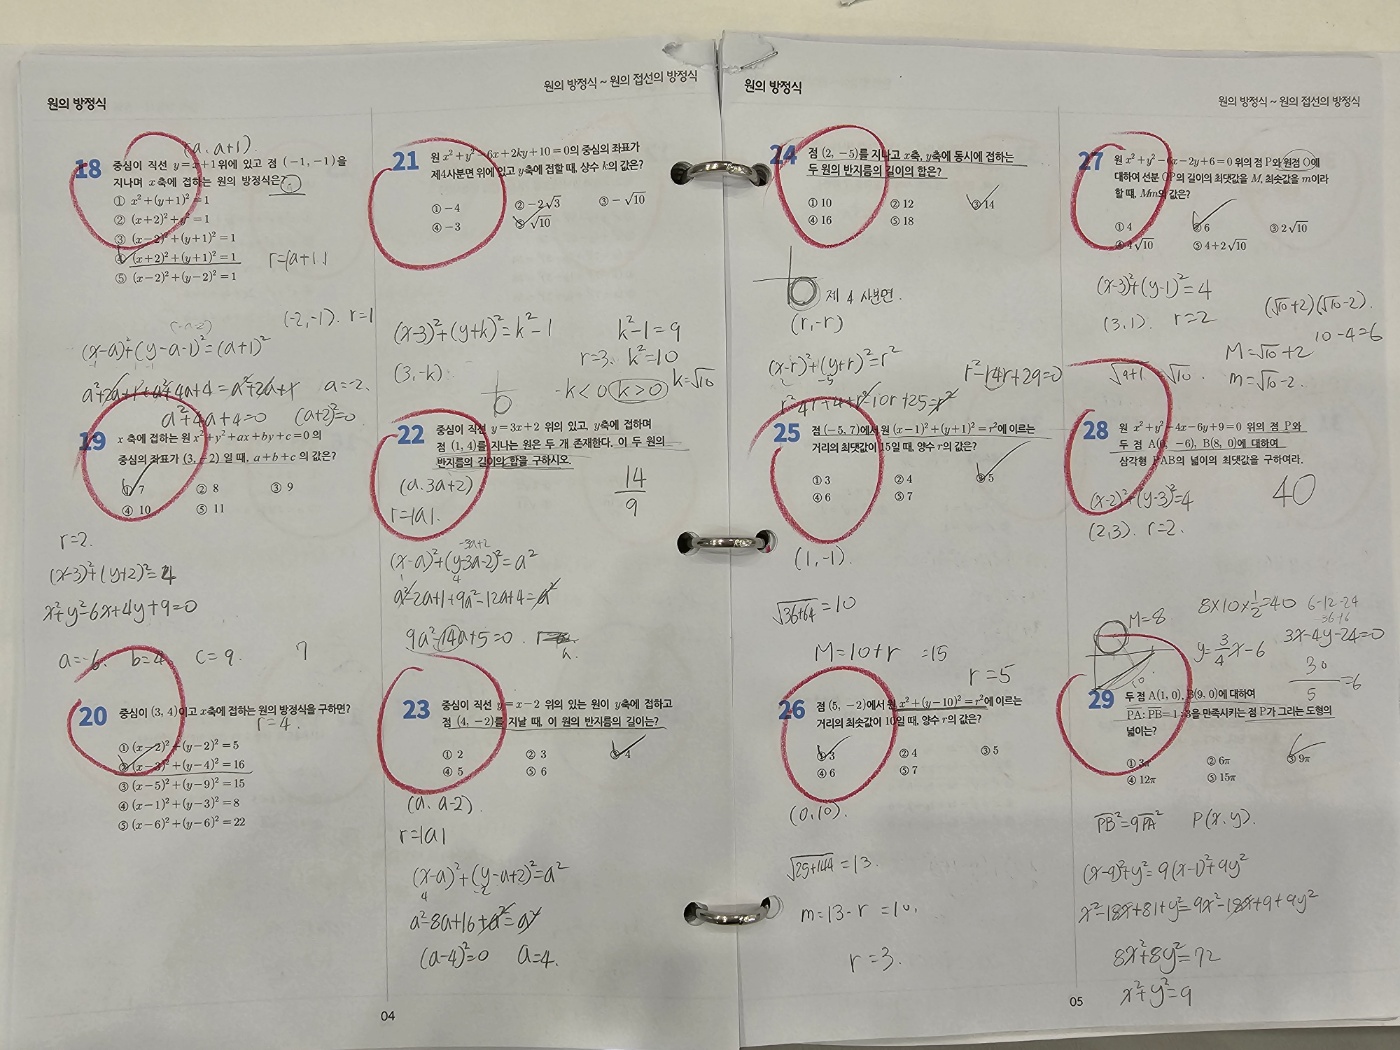 원의 방정식
원의 방정식 ~ 원의 접선의 방정식
(a, a+1)
18 중심이 직선 y=x+1 위에 있고 점 (-1, -1)을
지나며 x축에 접하는 원의 방정식은?
① x²+(y+1)²=1
② (x+2)²+y²=1
③ (x-2)²+(y+1)²=1
④ (x+2)²+(y+1)²=1
⑤ (x-2)²+(y-2)²=1
r=|a+1|
(-2, -1). r=1
(x-a)²+(y-a-1)²=(a+1)²
a=-2.
a²+4a+4=0 (a+2)²=0
19 x축에 접하는 원 x²+y²+ax+by+c=0의
중심의 좌표가 (3, -2)일 때, a+b+c의 값은?
① 7 ② 8 ③ 9
④ 10 ⑤ 11
r=2.
(x-3)²+(y+2)²=4
x²+y²-6x+4y+9=0
a=-6. b=4. c=9. 7
20 중심이 (3, 4)이고 x축에 접하는 원의 방정식을 구하면?
r=4.
① (x-2)²+(y-2)²=5
② (x-3)²+(y-4)²=16
③ (x-5)²+(y-9)²=15
④ (x-1)²+(y-3)²=8
⑤ (x-6)²+(y-6)²=22
21 원 x²+y²-6x+2ky+10=0의 중심의 좌표가
제4사분면 위에 있고 y축에 접할 때, 상수 k의 값은?
① -4 ② -2√3 ③ -√10
④ -3 ⑤ √10
(x-3)²+(y+k)²=k²-1 k²-1=9
r=3. k²=10
(3, -k). -k<0 k>0 k=√10
22 중심이 직선 y=3x+2 위의 있고, y축에 접하며
점 (1, 4)를 지나는 원은 두 개 존재한다. 이 두 원의
반지름의 길이의 합을 구하시오.
(a, 3a+2) 14/9
r=|a|.
-3a+2
(x-a)²+(y-3a-2)²=a²
a²-2a+1+9a²-12a+4=a²
9a²-14a+5=0
23 중심이 직선 y=x-2 위의 있는 원이 y축에 접하고
점 (4, -2)를 지날 때, 이 원의 반지름의 길이는?
① 2 ② 3 ③ 4
④ 5 ⑤ 6
(a, a-2)
r=|a|
(x-a)²+(y-a+2)²=a²
a²-8a+16+a²=a²
(a-4)²=0 a=4.
04
원의 방정식
원의 방정식 ~ 원의 접선의 방정식
24 점 (2, -5)를 지나고 x축, y축에 동시에 접하는
두 원의 반지름의 길이의 합은?
① 10 ② 12 ③ 14
④ 16 ⑤ 18
제 4 사분면.
(r, -r)
(x-r)²+(y+r)²=r²
r²-14r+29=0
25 점 (-5, 7)에서 원 (x-1)²+(y+1)²=r²에 이르는
거리의 최댓값이 15일 때, 양수 r의 값은?
① 3 ② 4 ③ 5
④ 6 ⑤ 7
(1, -1).
√36+64=10
M=10+r =15
r=5
26 점 (5, -2)에서 원 x²+(y-10)²=r²에 이르는
거리의 최솟값이 10일 때, 양수 r의 값은?
① 3 ② 4 ③ 5
④ 6 ⑤ 7
(0, 10).
√25+144=13.
m=13-r=10.
r=3.
27 원 x²+y²-6x-2y+6=0 위의 점 P와 원점 O에
대하여 선분 OP의 길이의 최댓값을 M, 최솟값을 m이라
할 때, Mm의 값은?
① 4 ② 6 ③ 2√10
④ 4√10 ⑤ 4+2√10
(x-3)²+(y-1)²=4
(3, 1). r=2 (√10+2)(√10-2).
10-4=6
M=√10+2
√9+1=√10. m=√10-2.
28 원 x²+y²-4x-6y+9=0 위의 점 P와
두 점 A(0, -6), B(8, 0)에 대하여
삼각형 PAB의 넓이의 최댓값을 구하여라.
(x-2)²+(y-3)²=4 40
(2, 3). r=2.
M=8 8×10×½=40 6-12-24
y=3/4x-6 3x-4y-24=0
30/5=6
29 두 점 A(1, 0), B(9, 0)에 대하여
PA:PB=1:3을 만족시키는 점 P가 그리는 도형의
넓이는?
① 3π ② 6π ③ 9π
④ 12π ⑤ 15π
PB²=9PA² P(x, y).
(x-9)²+y²=9(x-1)²+9y²
x²-18x+81+y²=9x²-18x+9+9y²
8x²+8y²=72
x²+y²=9
05